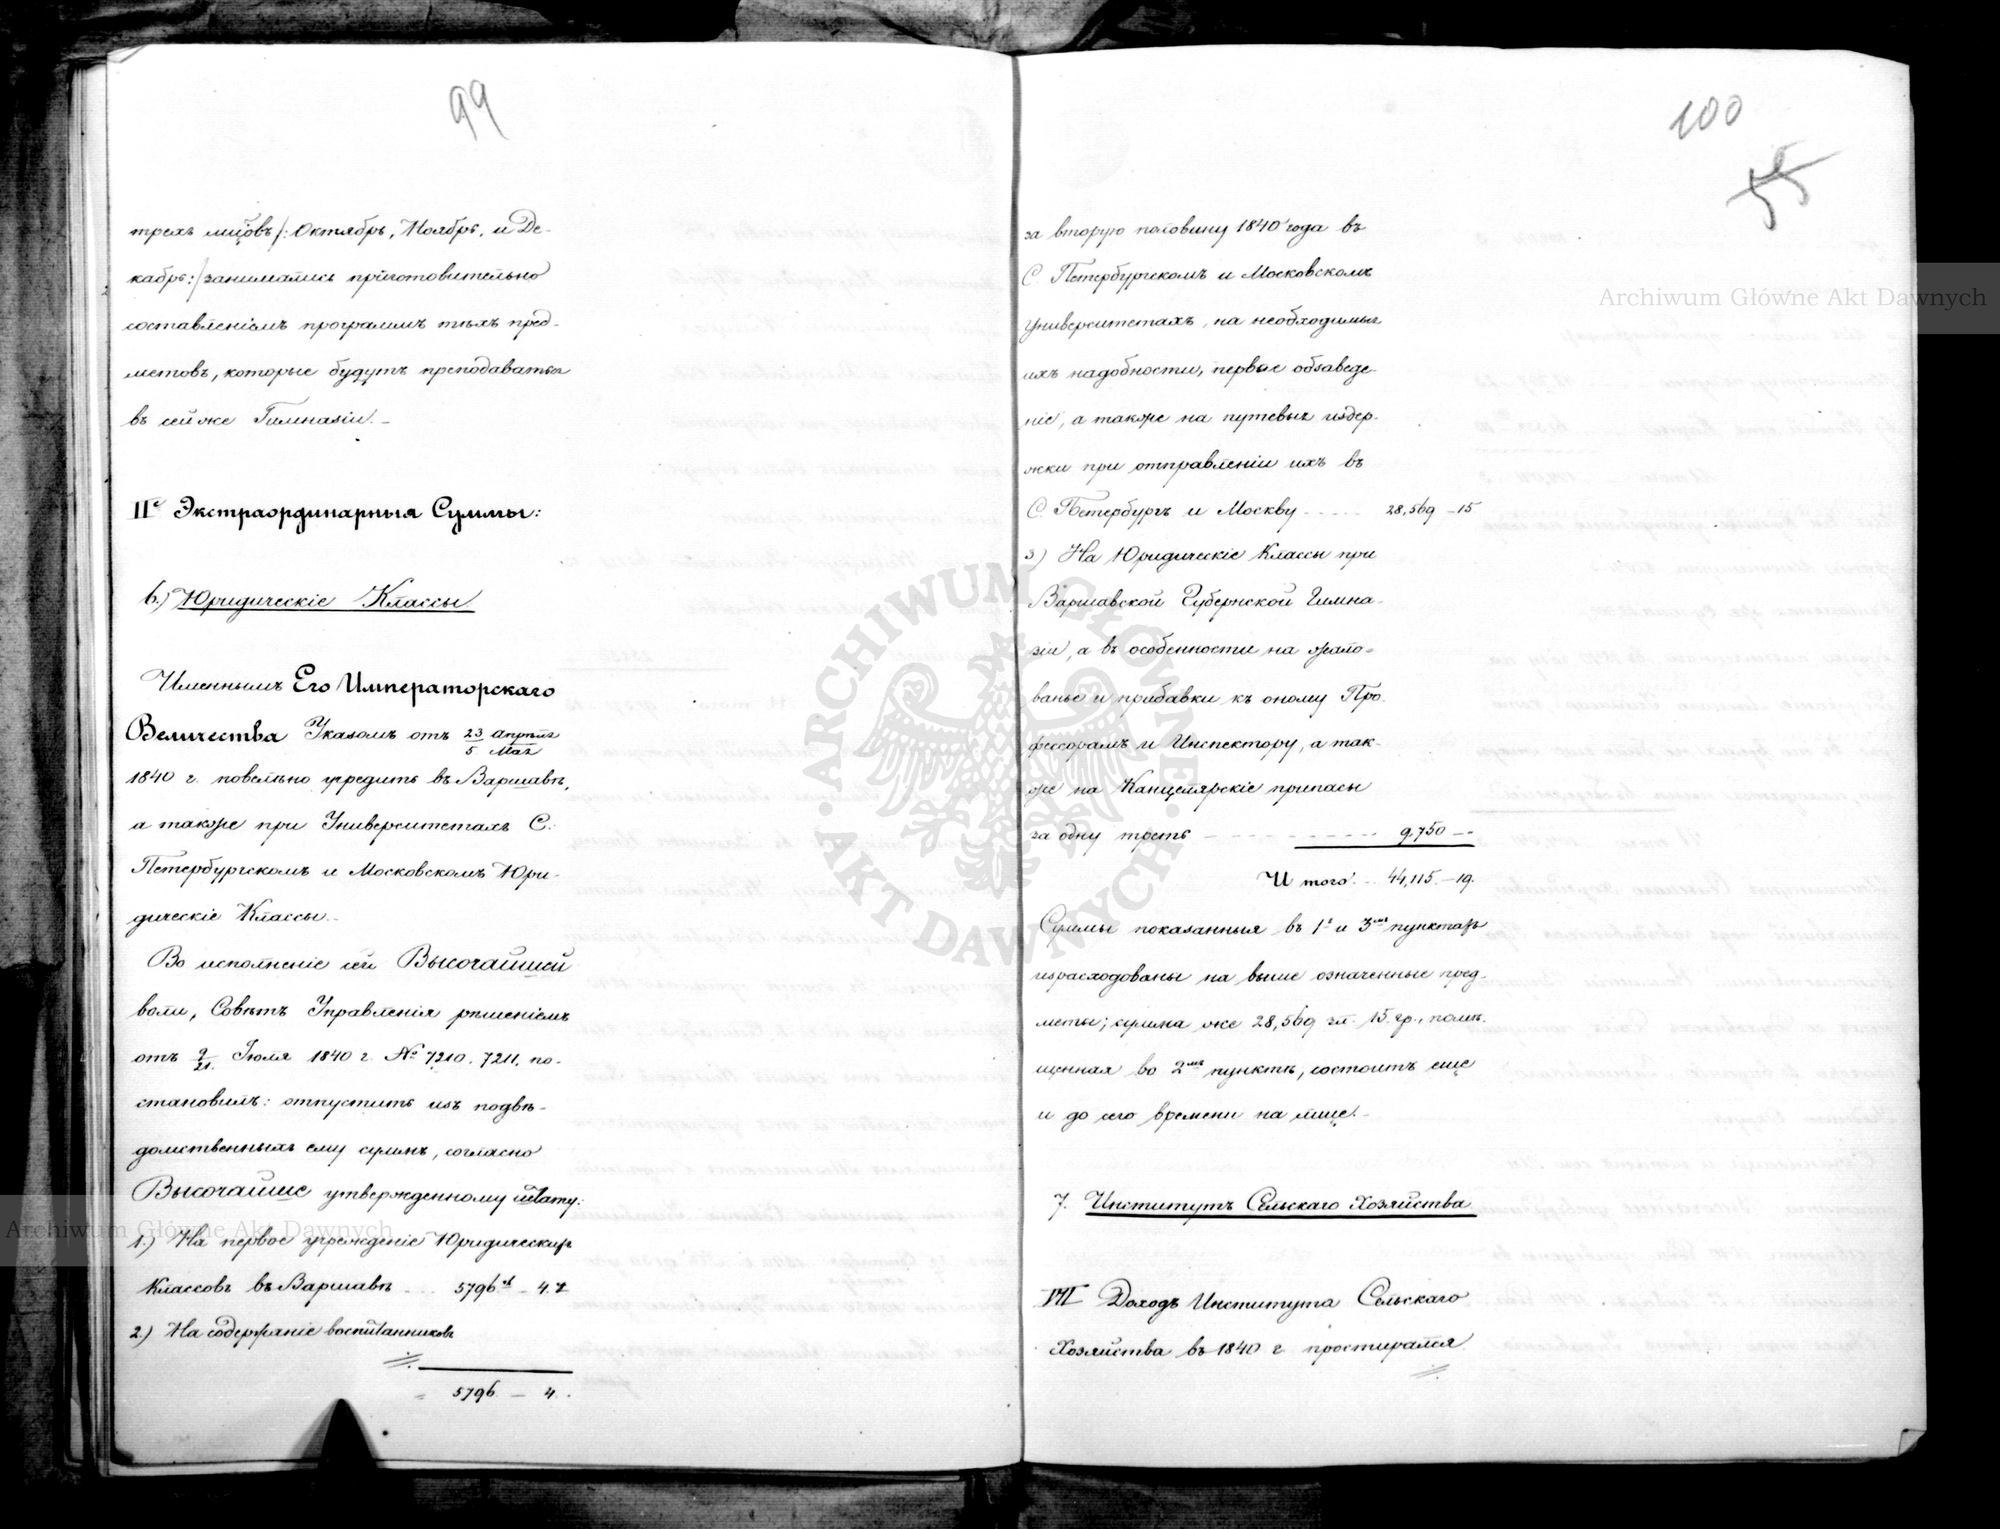 99
трехъ мѣсяцовъ /: Октябрь, Ноябрь, и Де-
кабрь :/ занимались приготовительно
составленіемъ программъ тѣхъ пред-
метовъ, которые будутъ преподаваться
въ сей же Гимназіи. -
IIе Экстраординарныя Суммы:
6.) Юридическіе Классы
Именнымъ Его Императорскаго
Величества Указомъ отъ 23 Апрѣля / 5 Мая
1840 г. повелѣно учредить въ Варшавѣ,
а также при Университетахъ С.
Петербургскомъ и Московскомъ Юри-
дическіе Классы. -
Во исполненіе сей Высочайшей
воли, Совѣтъ Управленія рѣшеніемъ
отъ 9/21 Іюля 1840 г. № 7210. 7211, по-
становилъ: отпустить изъ подвѣ-
домственныхъ ему суммъ, согласно
Высочайше утвержденному штату:
1.) На первое учрежденіе Юридическихъ
Классовъ въ Варшавѣ - - - 5796 - 4.
2.) На содержаніе воспитанниковъ
5796 - 4.
100
55
за вторую половину 1840 года въ
С. Петербургскомъ и Московскомъ
Университетахъ, на необходимыя
ихъ надобности, первое обзаведе-
ніе, а также на путевыя издер-
жки при отправленіи ихъ въ
С. Петербургъ и Москву - - - - 28,569 - 15
3) На Юридическіе Классы при
Варшавской Губернской Гимна-
зіи, а въ особенности на жало-
ванье и прибавки къ оному Про-
фессорамъ и Инспектору, а так-
же на Канцелярскіе припасы
за одну треть - - - - - - - - 9,750 - -
Итого - - 44,115. - 19.
Суммы показанныя въ 1 и 3мъ пунктахъ
израсходованы на выше означенные пред-
меты; сумма же 28,569 зл. 15. гр., помѣ-
щенная во 2мъ пунктѣ, состоитъ еще
и до сего времени на лице. -
7. Институтъ Сельскаго Хозяйства
Доходъ Института Сельскаго
Хозяйства въ 1840 г. простирался
Archiwum Główne Akt Dawnych
Archiwum Główne Akt Dawnych
ARCHIWUM GŁÓWNE · AKT DAWNYCH ·